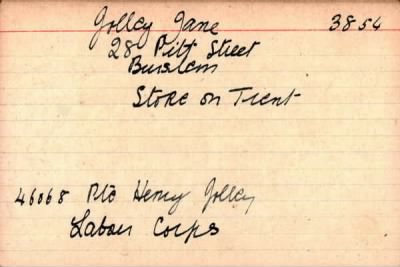 Jolley Jane 3854
28 Pitt Street
Burslem
Stoke on Trent
46068 Pte Henry Jolley
Labour Corps